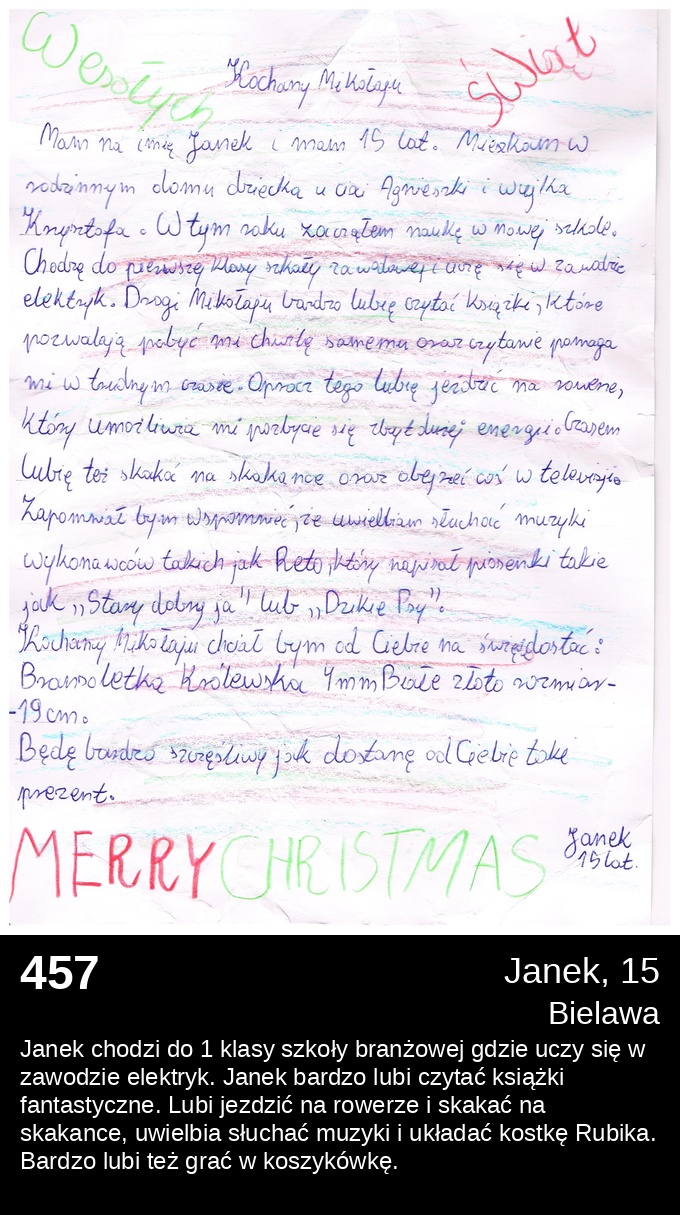 Wesołych Świąt
Kochany Mikołaju
Mam na imię Janek i mam 15 lat. Mieszkam w
rodzinnym domu dziecka u cioci Agnieszki i wujka
Krzysztofa. W tym roku zacząłem naukę w nowej szkole.
Chodzę do pierwszej klasy szkoły zawodowej i uczę się w zawodzie
elektryk. Drogi Mikołaju bardzo lubię czytać książki, które
pozwalają pobyć mi chwilę samemu oraz czytanie pomaga
mi w trudnym czasie. Oprócz tego lubię jeździć na rowerze,
który umożliwia mi pozbycie się zbyt dużej energii. Czasem
lubię też skakać na skakance oraz obejrzeć coś w telewizji.
Zapomniał bym wspomnieć, że uwielbiam słuchać muzyki
wykonawców takich jak Reto, który napisał piosenki takie
jak ,,Stary dobry ja" lub ,,Dzikie Psy".
Kochany Mikołaju chciał bym od Ciebie na święta dostać:
Bransoletka Królewska 4mm Białe złoto rozmiar-
-19cm.
Będę bardzo szczęśliwy jak dostanę od Ciebie taki
prezent.
MERRY CHRISTMAS
Janek
15 lat.
457
Janek, 15
Bielawa
Janek chodzi do 1 klasy szkoły branżowej gdzie uczy się w
zawodzie elektryk. Janek bardzo lubi czytać książki
fantastyczne. Lubi jezdzić na rowerze i skakać na
skakance, uwielbia słuchać muzyki i układać kostkę Rubika.
Bardzo lubi też grać w koszykówkę.